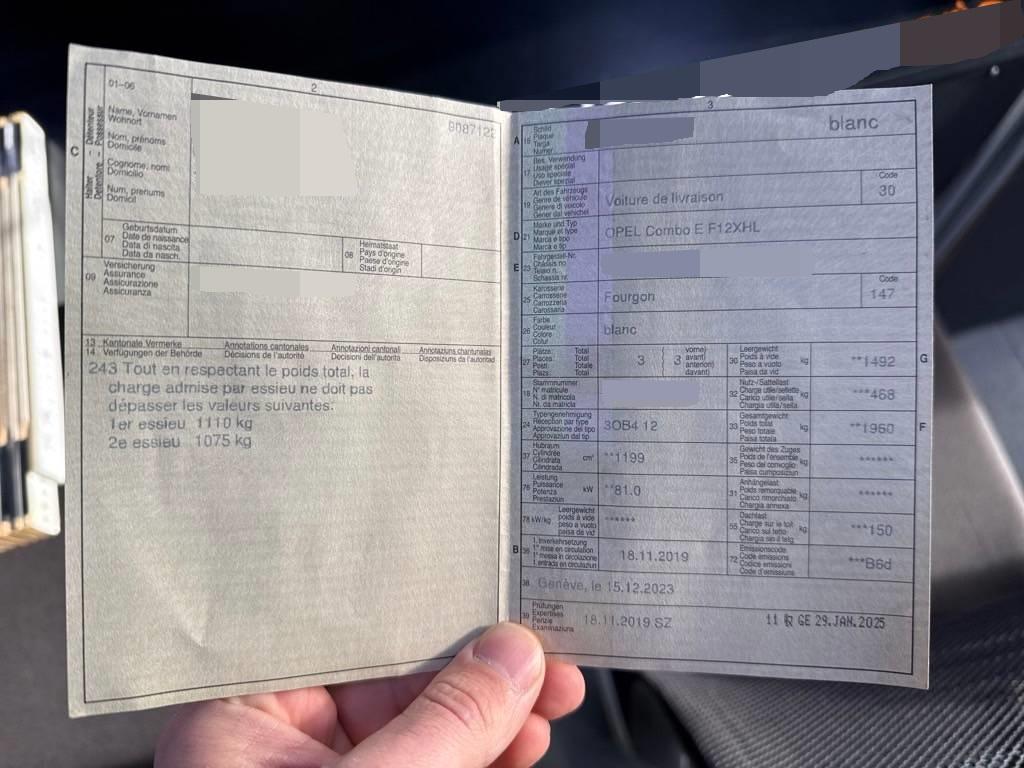 01–06
2
C
Halter
Détenteur
Detentore
Possessur
Name, Vornamen
Wohnort
Nom, prénoms
Domicile
Cognome, nomi
Domicilio
Num, prenums
Domicil
07
Geburtsdatum
Date de naissance
Data di nascita
Data da nasch.
08
Heimatstaat
Pays d'origine
Paese d'origine
Stadi d'origin
09
Versicherung
Assurance
Assicurazione
Assicuranza
13 Kantonale Vermerke Annotations cantonales Annotazioni cantonali Annotaziuns chantunalas
14 Verfügungen der Behörde Décisions de l'autorité Decisioni dell'autorità Disposiziuns da l'autoritad
243 Tout en respectant le poids total, la
charge admise par essieu ne doit pas
dépasser les valeurs suivantes:
1er essieu 1110 kg
2e essieu 1075 kg
3
A
Schild
Plaque
Targa
Numer
blanc
17
Bes. Verwendung
Usage spécial
Uso speciale
Diever spezial
19
Art des Fahrzeugs
Genre de véhicule
Genere di veicolo
Gener dal vehichel
Voiture de livraison
Code
30
D
21
Marke und Typ
Marque et type
Marca e tipo
Marca e tip
OPEL Combo E F12XHL
E
23
Fahrgestell-Nr.
Châssis no
Telaio n.
Schassis nr.
25
Karosserie
Carrosserie
Carrozzeria
Carossaria
Fourgon
Code
147
26
Farbe
Couleur
Colore
Colur
blanc
27
Plätze: Total
Places: Total
Posti: Totale
Plazs: Total
3
3
vorne)
avant)
anteriori)
davant)
30
Leergewicht
Poids à vide
Peso a vuoto
Paisa da vid
kg
**1492
G
18
Stammnummer
N° matricule
N. di matricola
Nr. da matricla
32
Nutz-/Sattellast
Charge utile/sellette
Carico utile/sella
Chargia utila/sella
kg
***468
24
Typengenehmigung
Réception par type
Approvazione del tipo
Approvaziun dal tip
3OB4 12
33
Gesamtgewicht
Poids total
Peso totale
Paisa totala
kg
**1960
F
37
Hubraum
Cylindrée
Cilindrata
Cilindrada
cm³
**1199
35
Gewicht des Zuges
Poids de l'ensemble
Peso del convoglio
Paisa cumposiziun
kg
******
76
Leistung
Puissance
Potenza
Prestaziun
kW
**81.0
31
Anhängelast
Poids remorquable
Carico rimorchiato
Chargia annexa
kg
******
78 kW/kg
Leergewicht
poids à vide
peso a vuoto
paisa da vid
******
55
Dachlast
Charge sur le toit
Carico sul tetto
Chargia sin il tetg
kg
***150
B
36
1. Inverkehrsetzung
1re mise en circulation
1a messa in circolazione
1. entrada en circulaziun
18.11.2019
72
Emissionscode
Code émissions
Codice emissioni
Code d'emissiuns
***B6d
38
Genève, le 15.12.2023
39
Prüfungen
Expertises
Perizie
Examinaziuns
18.11.2019 SZ
11 R GE 29.JAN.2025